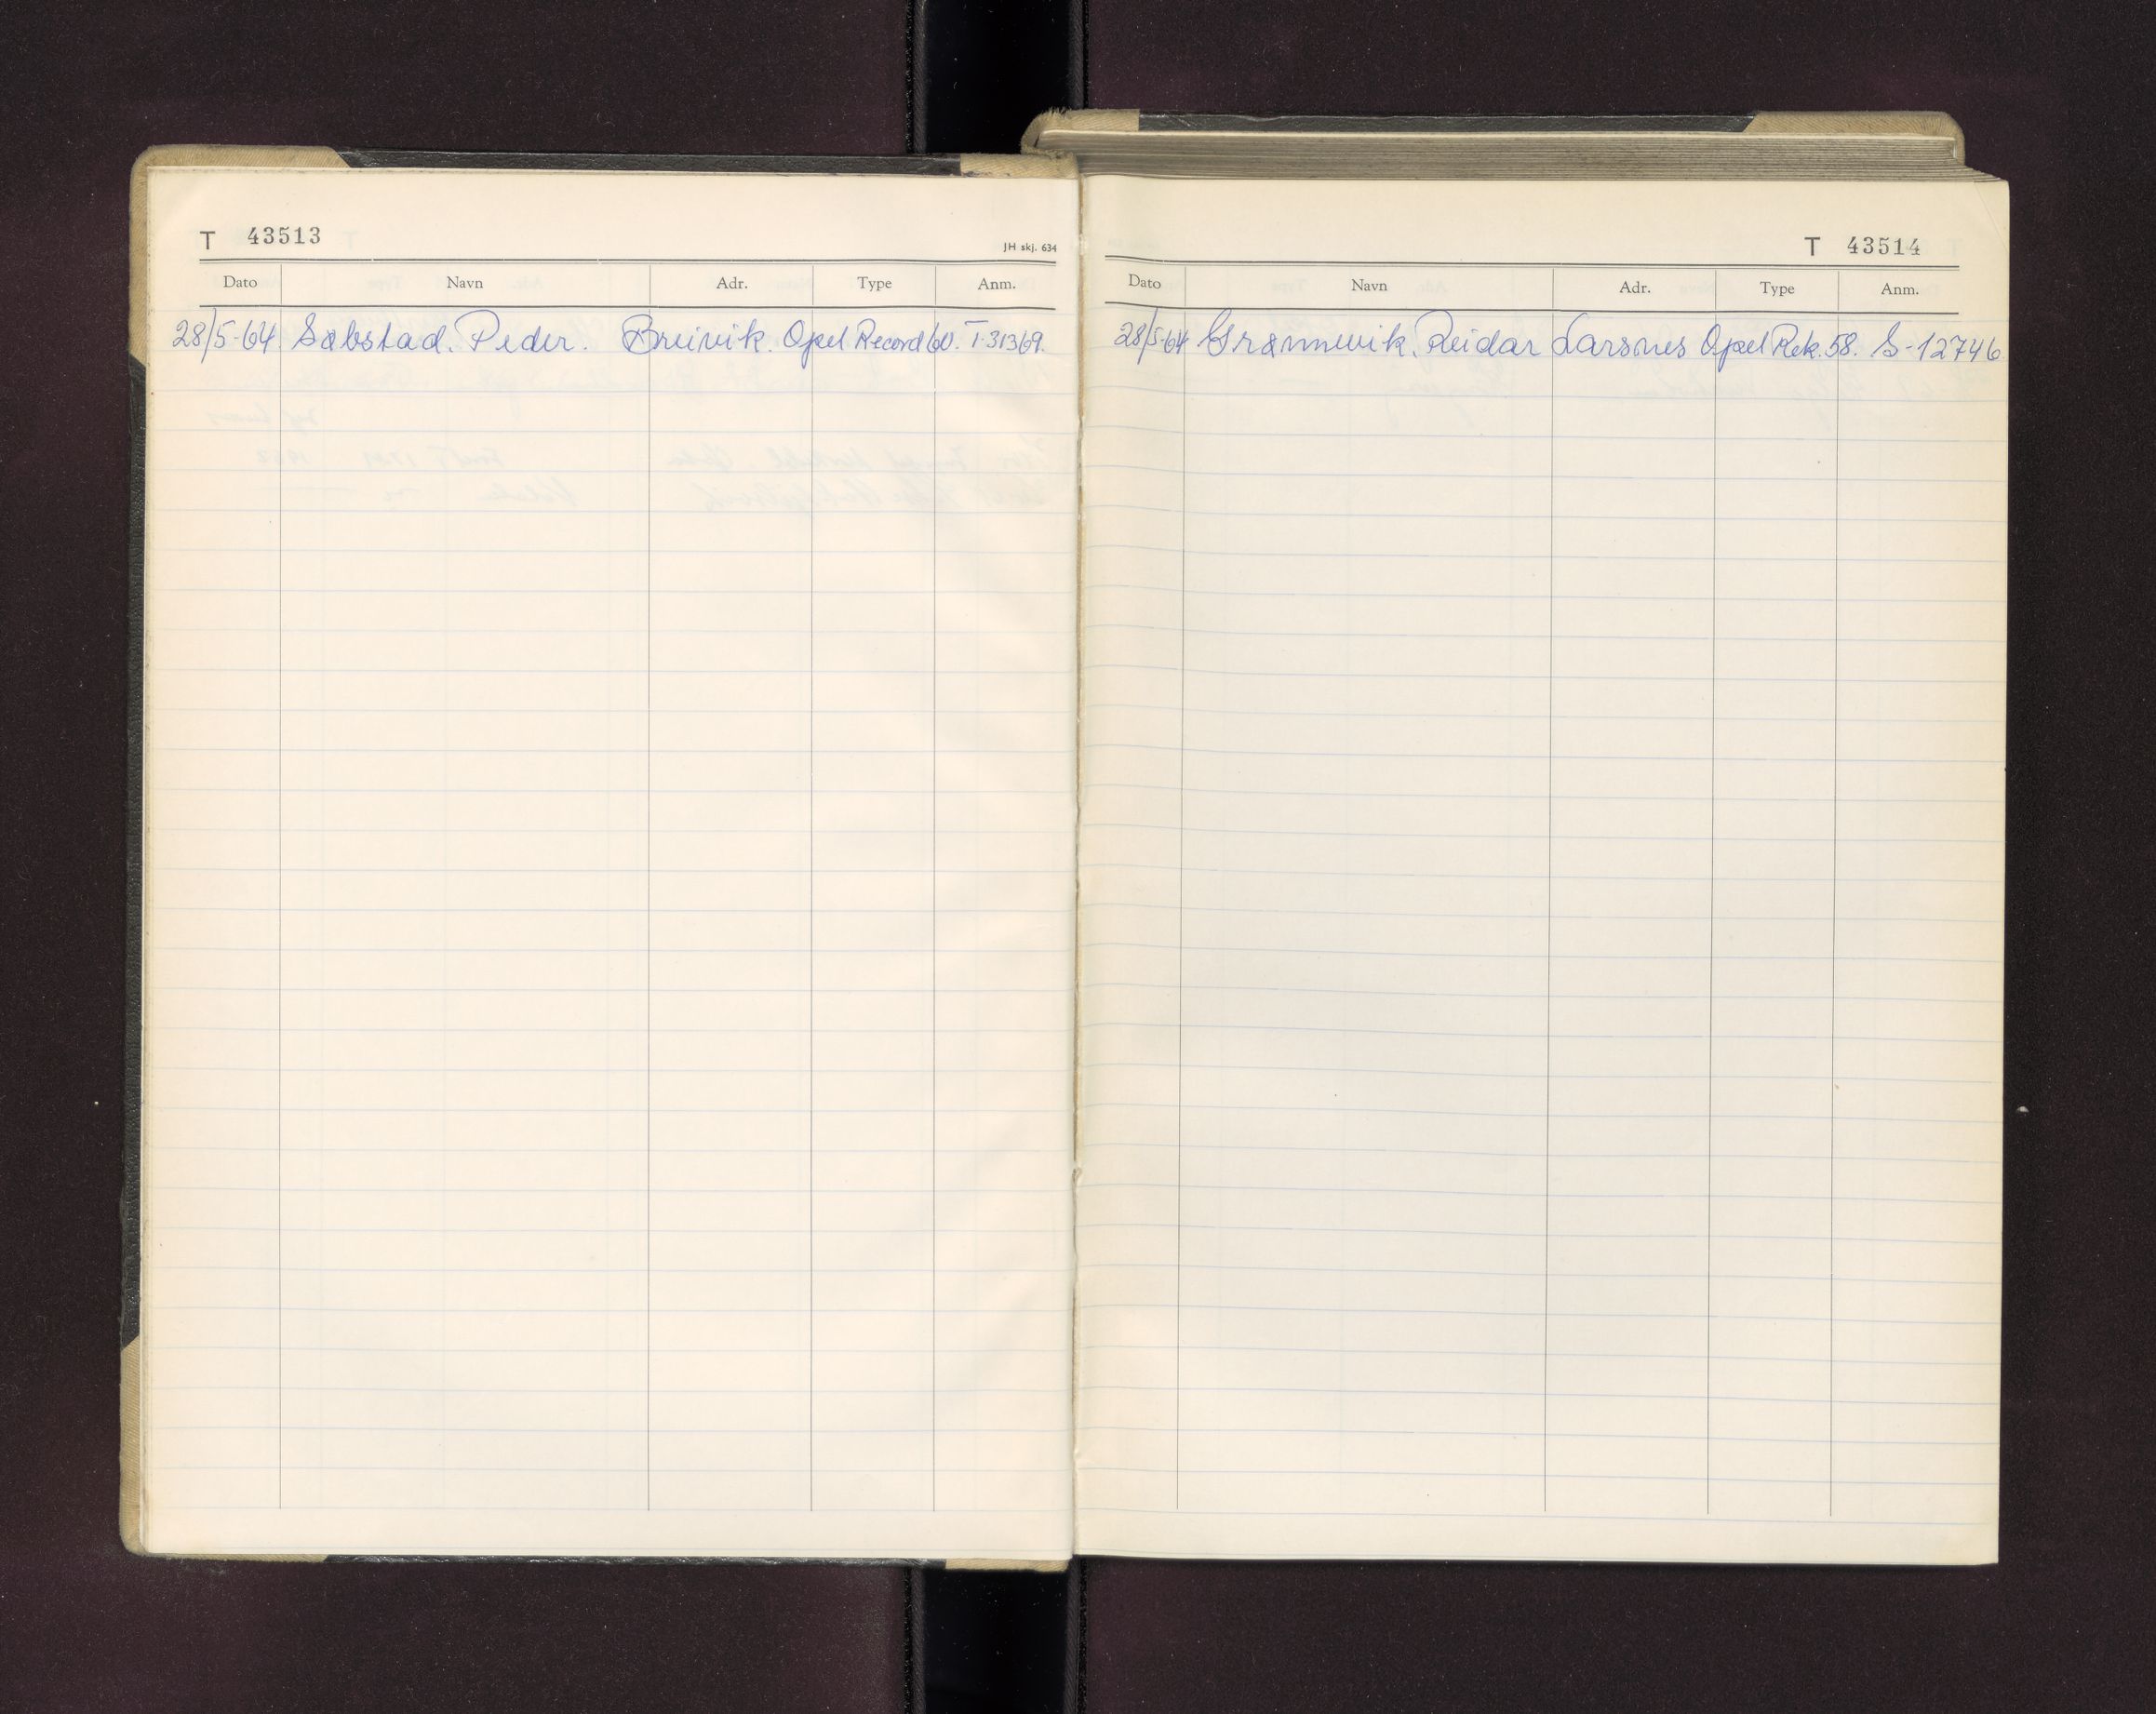 T 43513
JH skj. 634
Dato Navn Adr. Type Anm.
28/5-64 Sæbstad. Peder. Breivik. Opel Record 60. T-31369.
T 43514
Dato Navn Adr. Type Anm.
28/5-64 Grønnevik. Reidar Larsnes Opel Rek. 58. S-12746